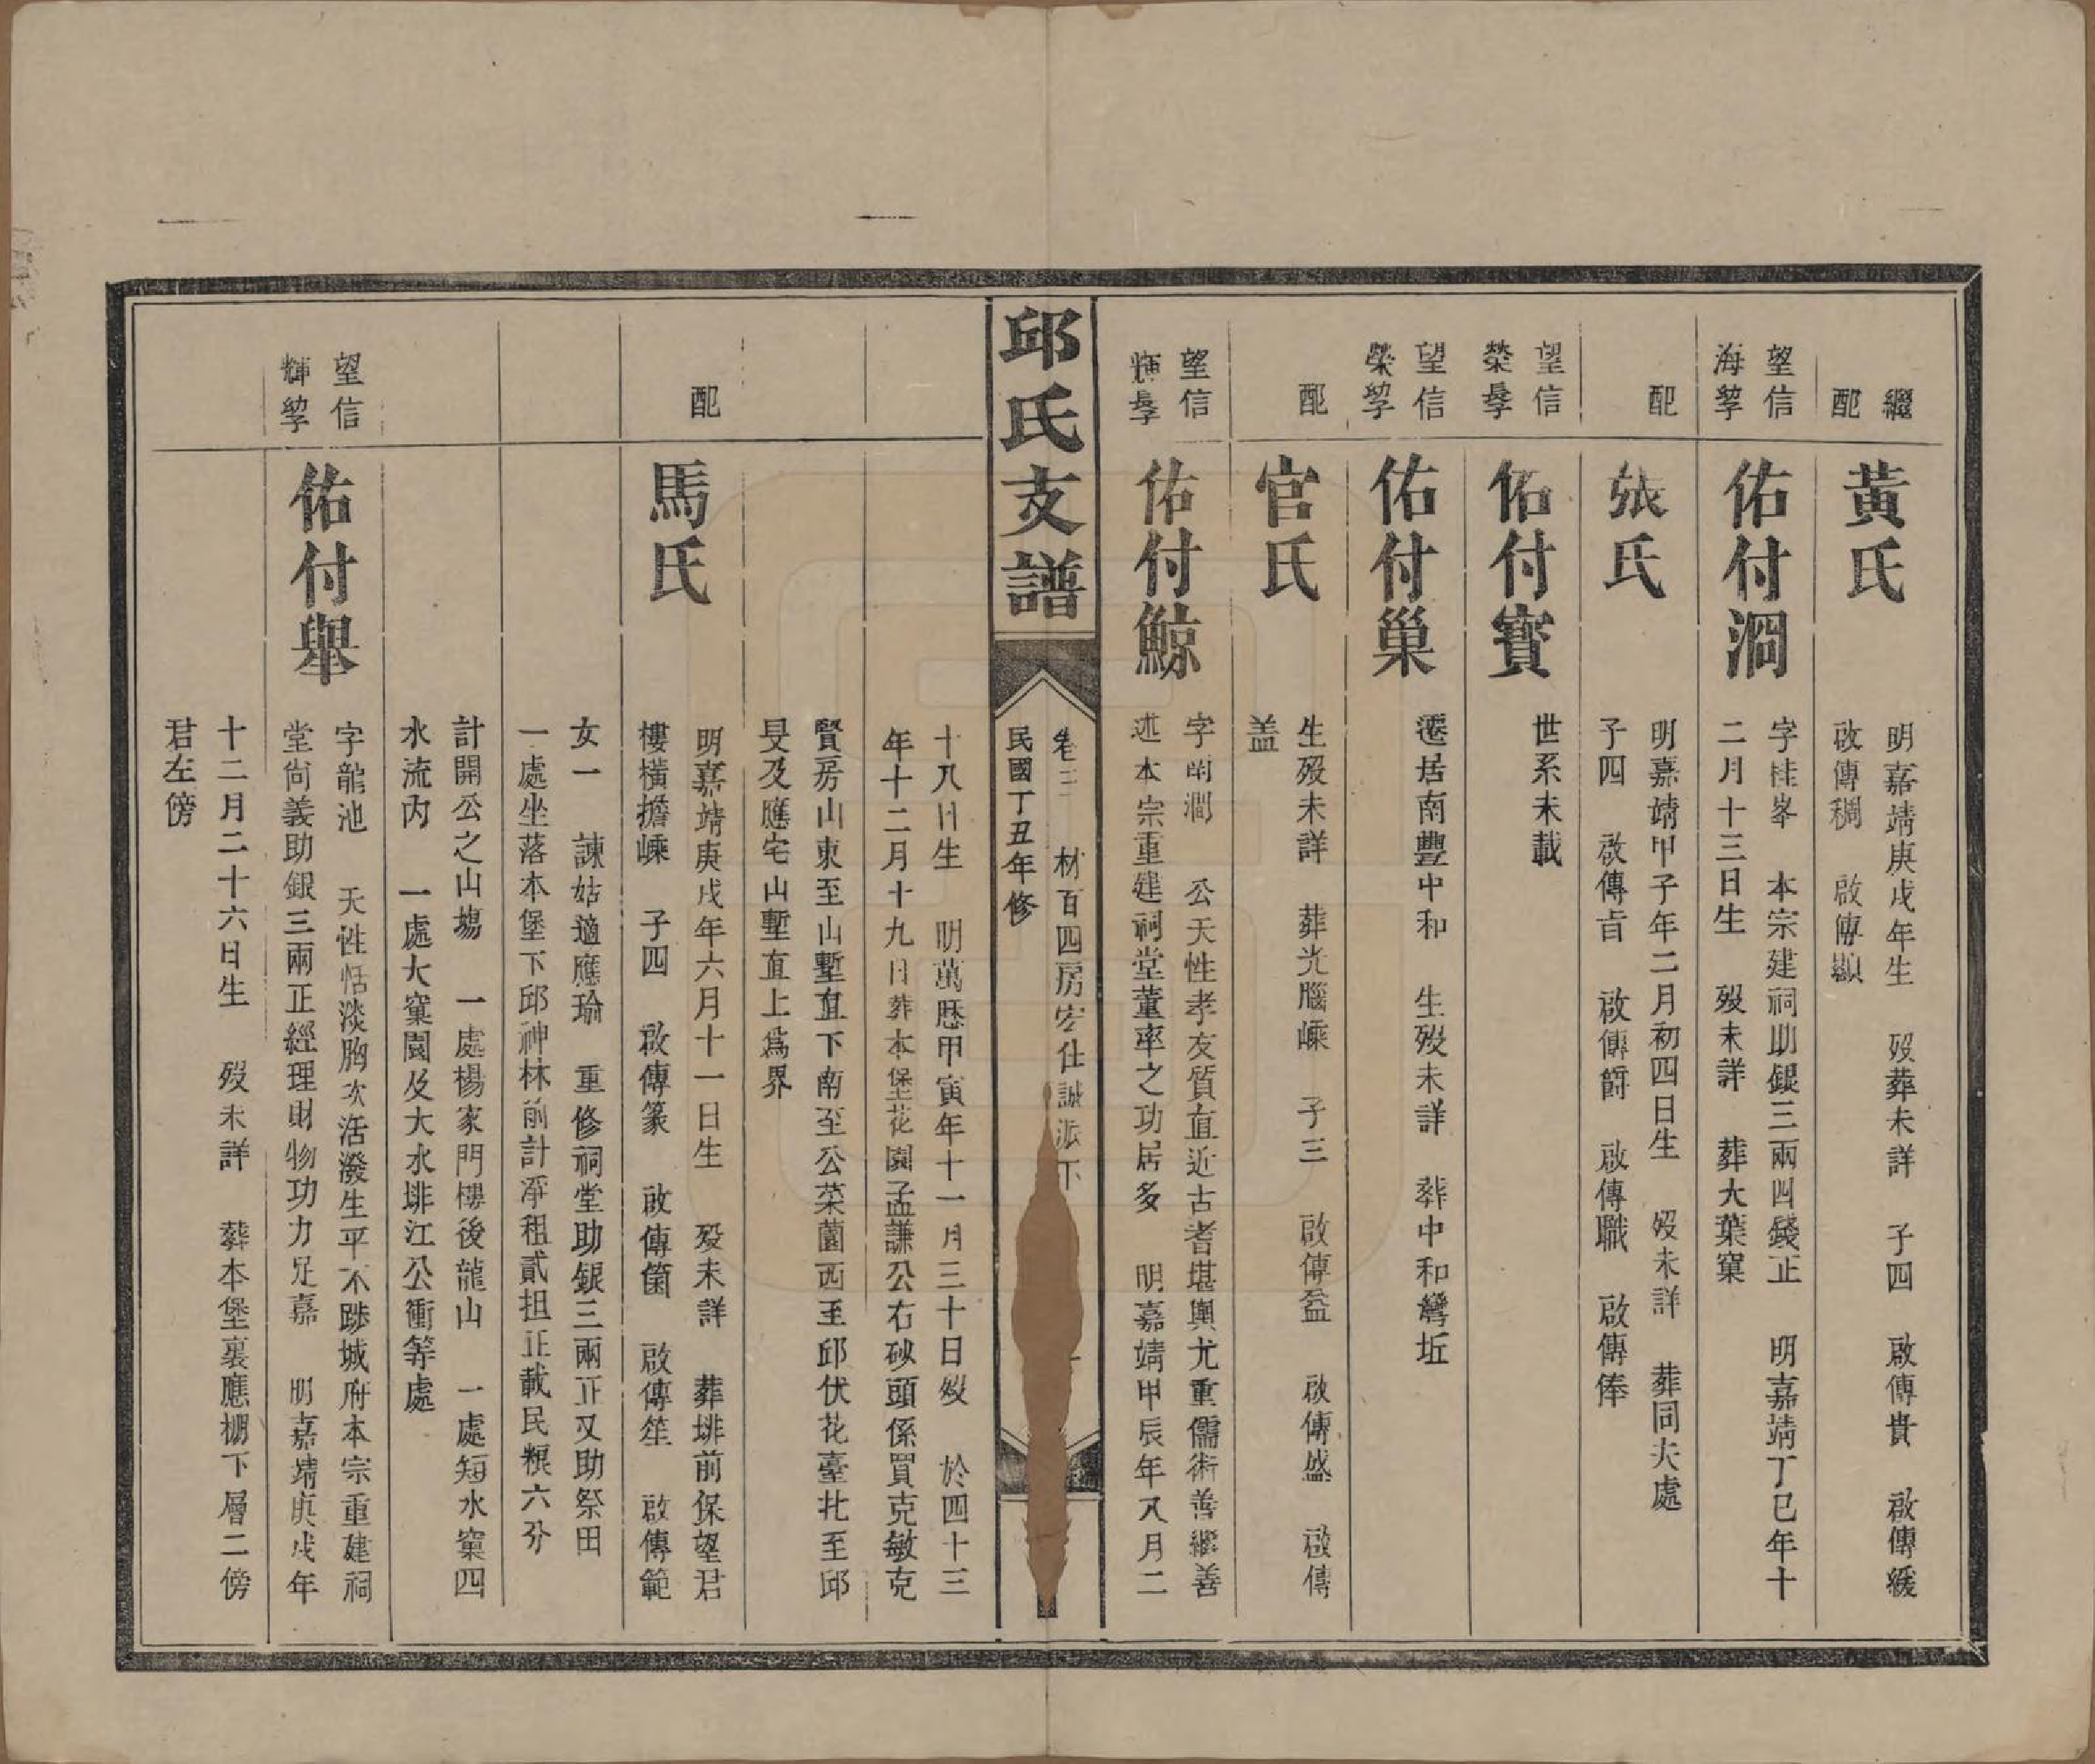 繼
配
黃氏
明嘉靖庚戌年生　歿葬未詳　子四　啟傳貴　啟傳緩
啟傳稠　啟傳顯
望信
海孥
佑付潤
字桂峯　本宗建祠助銀三兩四錢正　明嘉靖丁巳年十
二月十三日生　歿未詳　葬大葉窠
配
張氏
明嘉靖甲子年二月初四日生　歿未詳　葬同夫處
子四　啟傳旨　啟傳爵　啟傳職　啟傳俸
望信
榮孥
佑付寶
世系未載
望信
榮孥
佑付巢
遷居南豐中和　生歿未詳　葬中和灣坵
配
官氏
生歿未詳　葬光腦嵊　子三　啟傳益　啟傳盛　啟傳
盖
望信
輝孥
佑付鯨
字 澗　公天性孝友質直近古耆堪輿尤重儒術善繼善
述本宗重建祠堂董率之功居多　明嘉靖甲辰年八月二
邱氏支譜
卷三　材百四房宏仕誠派下
民國丁丑年修
十八日生　明萬歷甲寅年十一月三十日歿　於四十三
年十二月十九日葬本堡花園孟謙公右砂頭係買克敏克
賢房山東至山塹直下南至公菜薗西至邱伏花臺北至邱
旻及應宅山塹直上爲界
配
馬氏
明嘉靖庚戌年六月十一日生　歿未詳　葬排前保望君
樓橫擔嵊　子四　啟傳篆　啟傳箘　啟傳笙　啟傳範
女一　諫姑適應瑜　重修祠堂助銀三兩正又助祭田
一處坐落本堡下邱神林前計淨租貳担正載民粮六分
計開公之山塲　一處楊家門樓後龍山　一處短水窠四
水流內　一處大窠園及大水排江公衝等處
望信
輝孥
佑付舉
字龍池　天性恬淡胸次活潑生平不踄城府本宗重建祠
堂尚義助銀三兩正經理財物功力足嘉　明嘉靖庚戌年
十二月二十六日生　歿未詳　葬本堡裏應棚下層二傍
君左傍